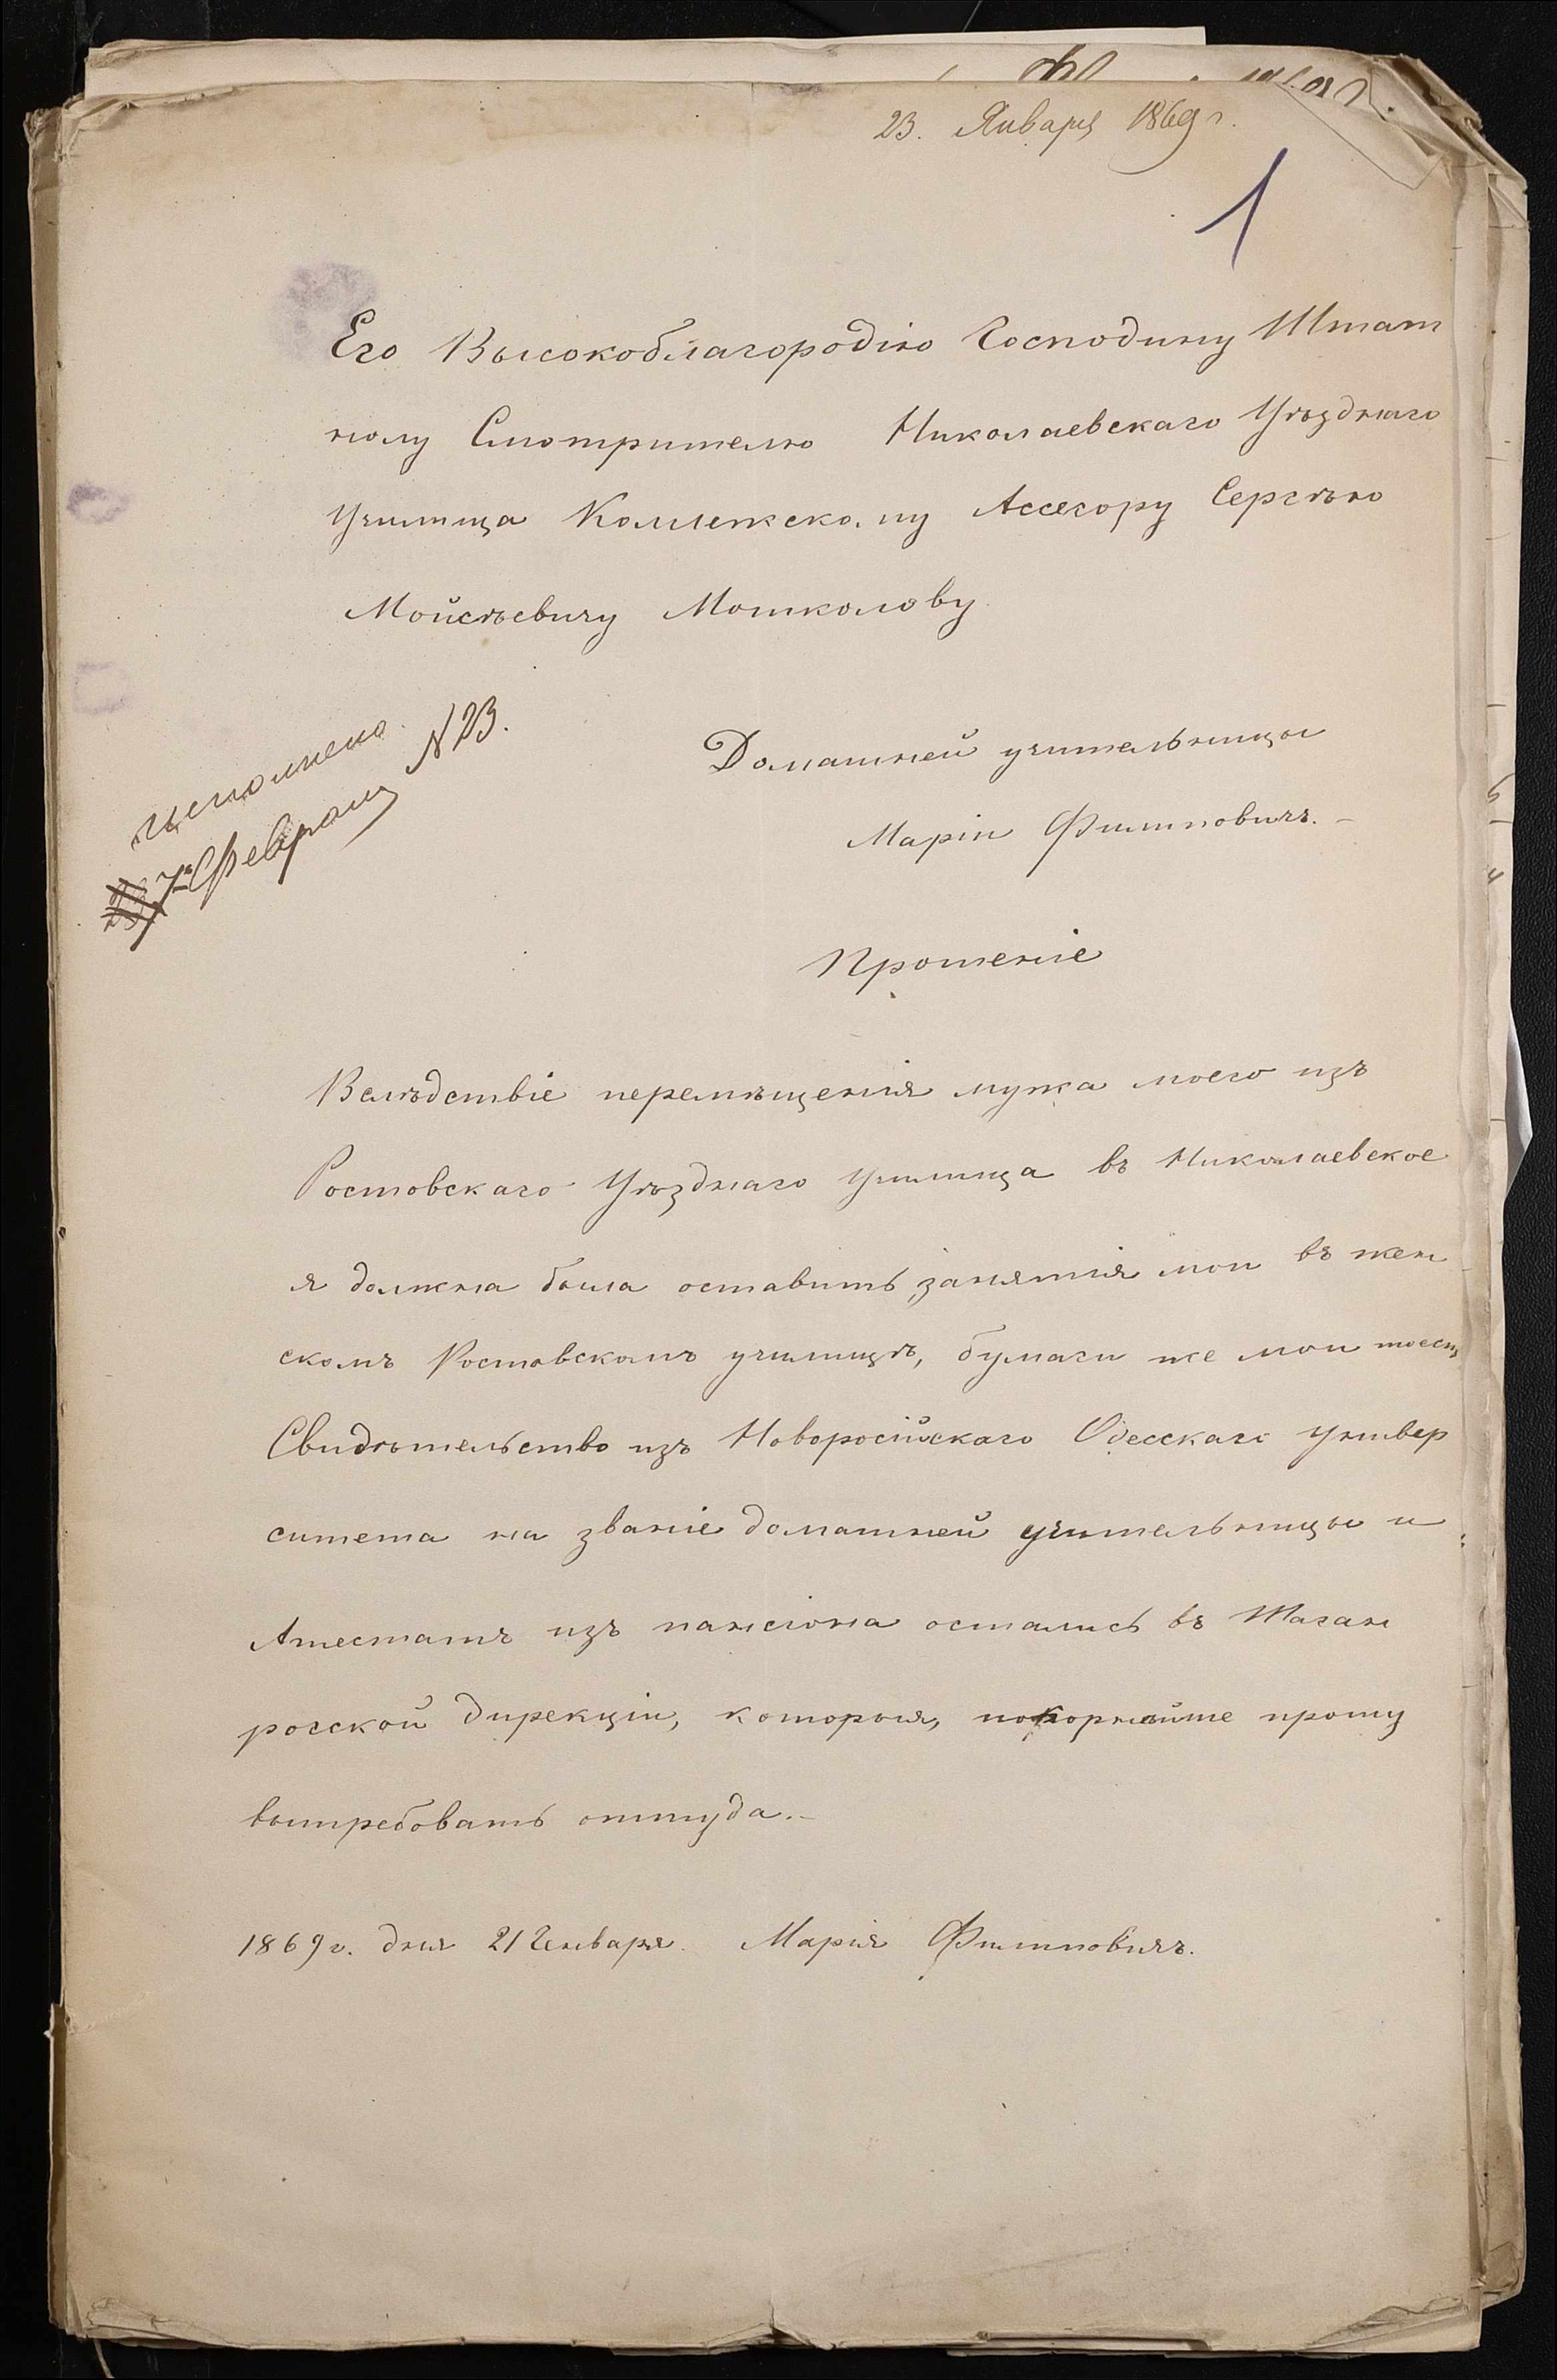 23. Января 1869 г.
1
Его Высокоблагородію Господину Штат
ному Смотрителю Николаевскаго Уѣзднаго
Училища Коллежскому Ассесору Сергѣю
Мойсѣевичу Мошколову
исполнено
7го Февраля N 23.
Домашней учительницы
Маріи Филиповичъ. —
Прошеніе
Вслѣдствіе перемѣщенія мужа моего изъ
Ростовскаго Уѣзднаго Училища въ Николаевское
я должна была оставить занятія мои въ жен
скомъ Ростовскомъ училищѣ, бумаги же мои тоесть
Свидѣтельство изъ Новоросійскаго Одесскаго Универ
ситета на званіе домашней учительницы и
Атестатъ изъ пансіона остались въ Таган
рогской дирекціи, которыя, покорнѣйше прошу
вытребовать оттуда. —
1869 г. дня 21 Генваря. Марія Филиповичъ.